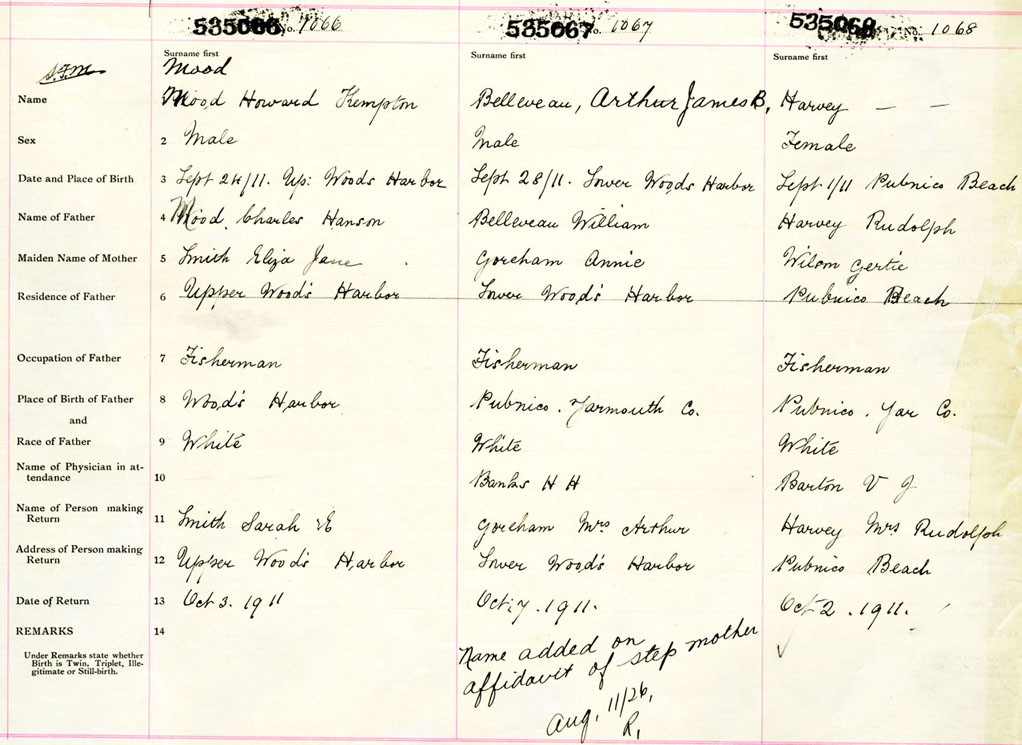 535066 No. 1066 535067 No. 1067 535068 No. 1068
Surname first Surname first Surname first
S.F.M. Mood
Name Mood Howard Kempton Belleveau, Arthur James B, Harvey — —
Sex 2 Male Male Female
Date and Place of Birth 3 Sept 24/11. Up: Woods Harbor Sept 28/11. Lower Woods Harbor Sept 1/11 Pubnico Beach
Name of Father 4 Mood, Charles Hanson Belleveau William Harvey Rudolph
Maiden Name of Mother 5 Smith Eliza Jane Goreham Annie Wilson Gertie
Residence of Father 6 Upper Wood's Harbor Lower Wood's Harbor Pubnico Beach
Occupation of Father 7 Fisherman Fisherman Fisherman
Place of Birth of Father 8 Wood's Harbor Pubnico. Yarmouth Co. Pubnico. Yar Co.
and
Race of Father 9 White White White
Name of Physician in at-
tendance 10 Banks H H Barton V J
Name of Person making
Return 11 Smith Sarah E Goreham Mrs Arthur Harvey Mrs Rudolph
Address of Person making
Return 12 Upper Wood's Harbor Lower Wood's Harbor Pubnico Beach
Date of Return 13 Oct 3. 1911 Oct 7. 1911. Oct 2. 1911.
REMARKS 14
Under Remarks state whether
Birth is Twin, Triplet, Ille-
gitimate or Still-birth.
Name added on
affidavit of step mother
Aug. 11/26,
R,